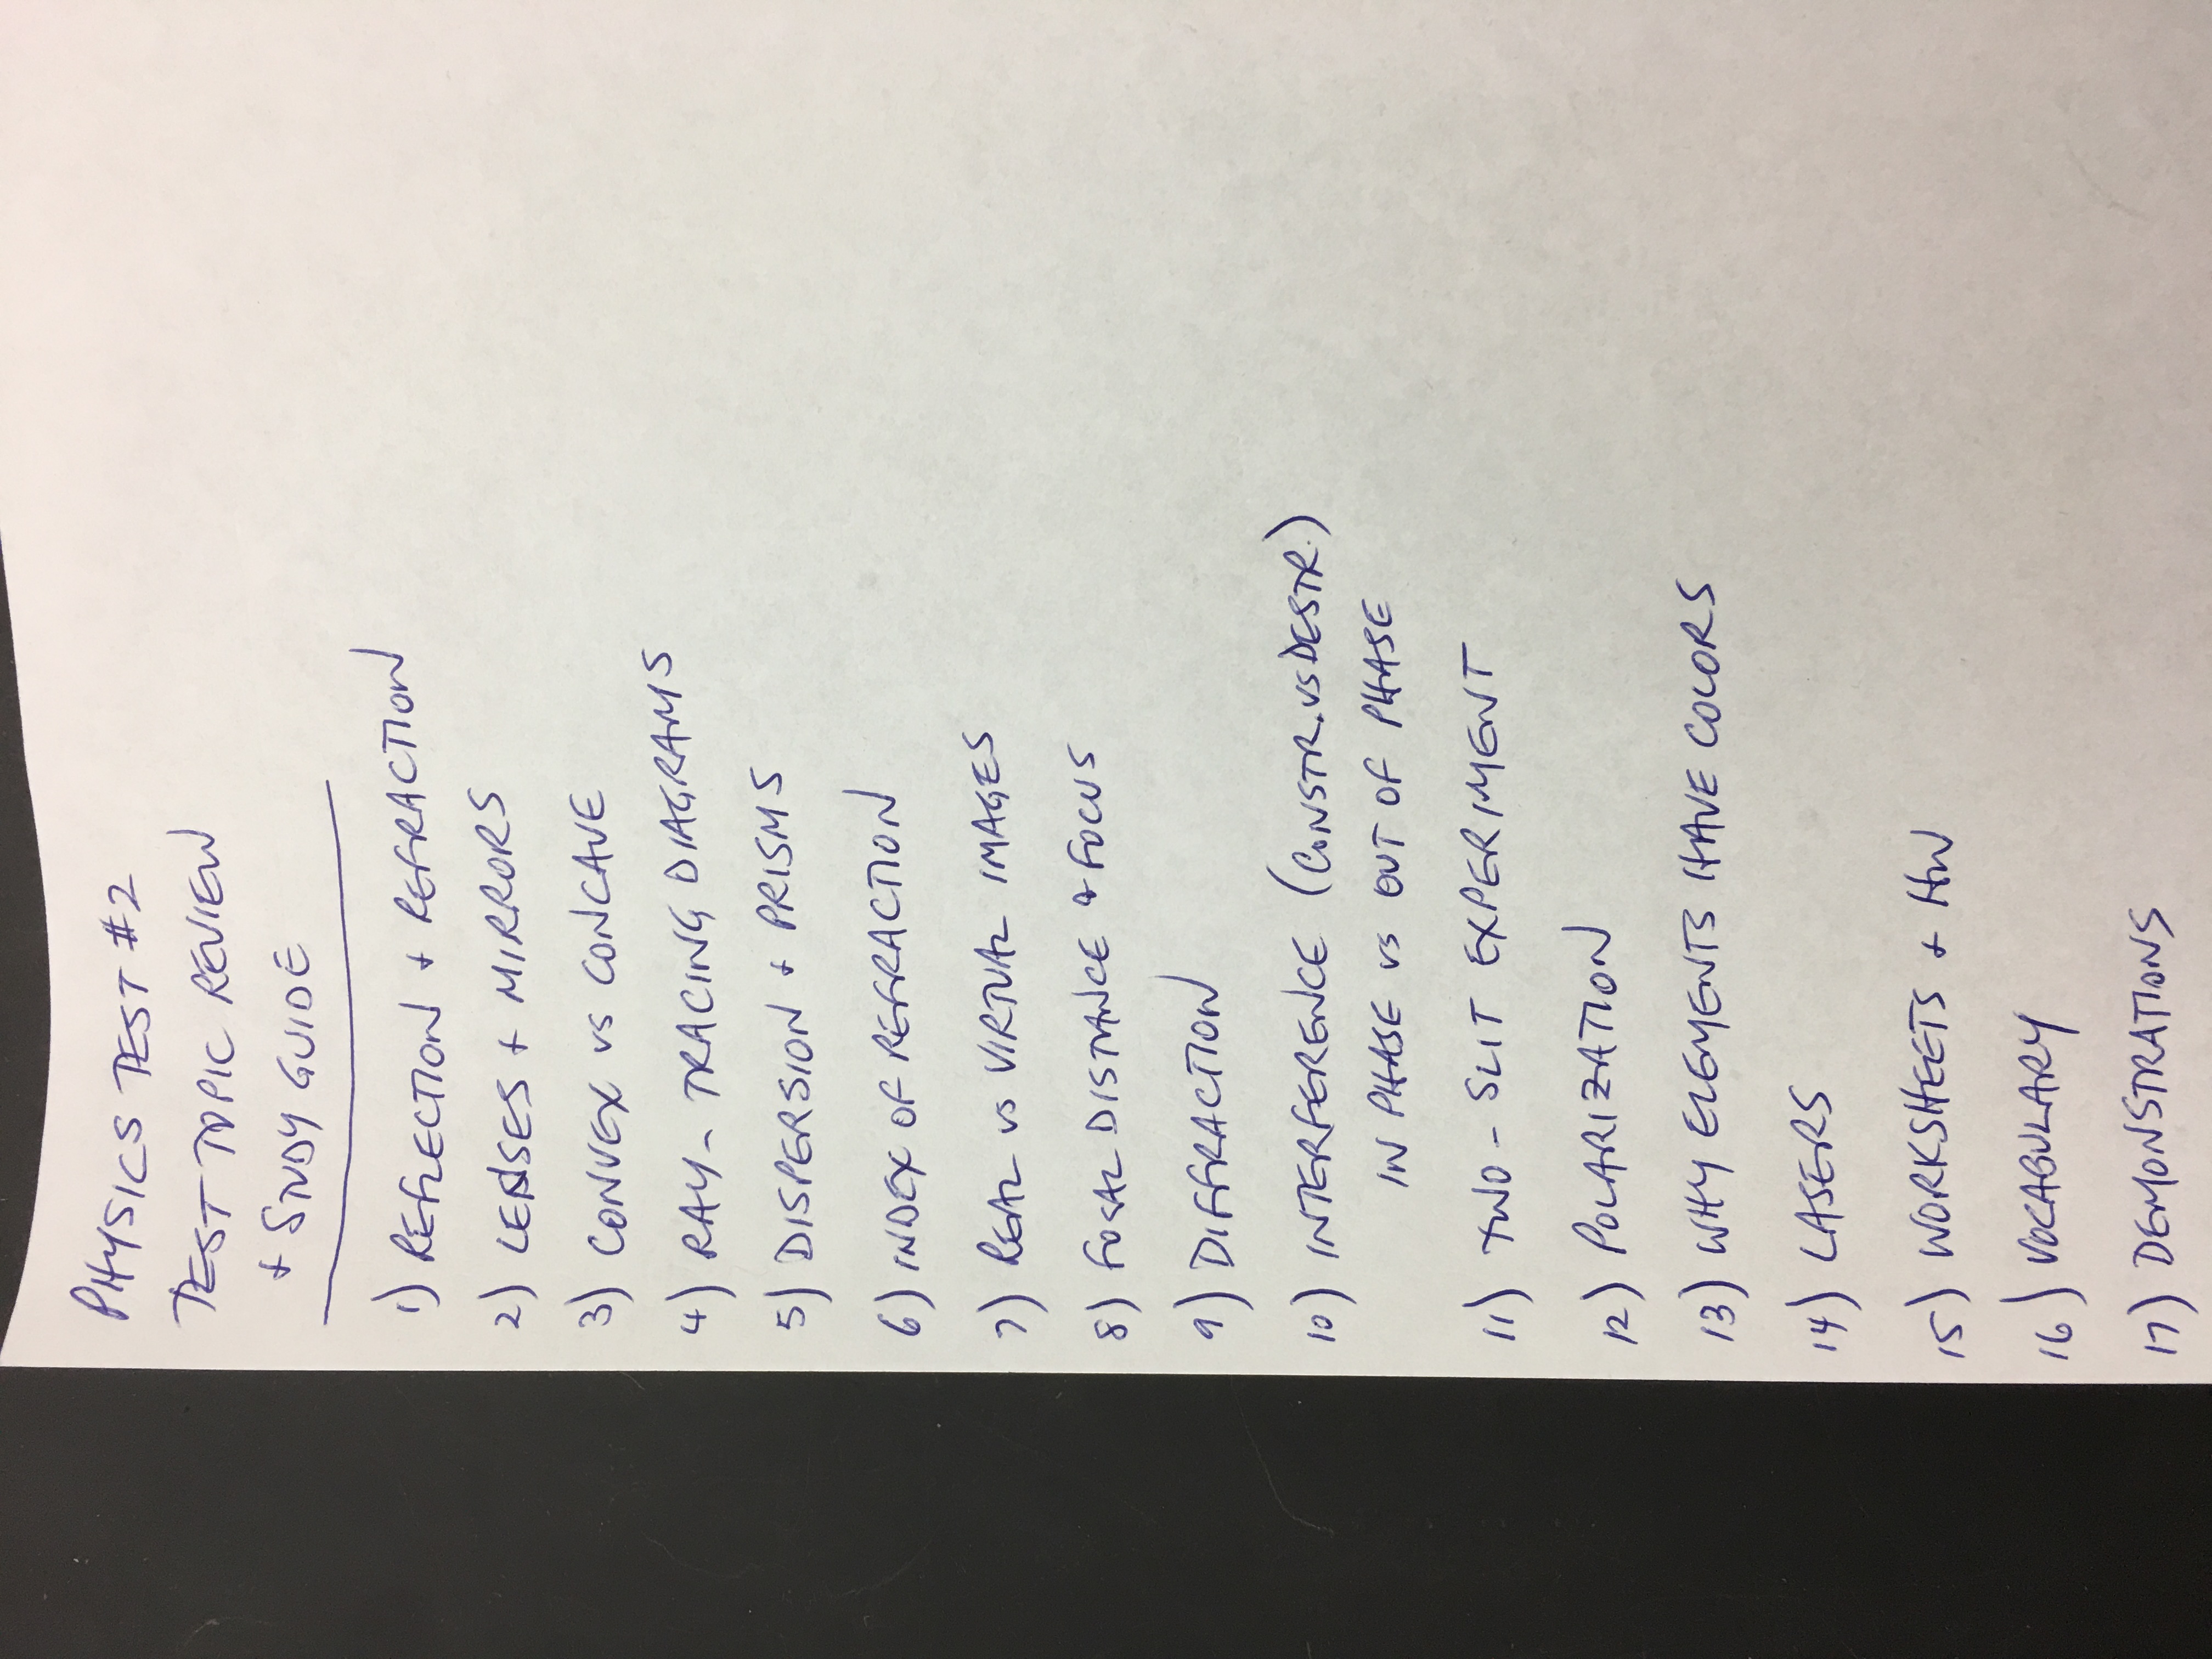 PHYSICS TEST #2
TEST TOPIC REVIEW
+ STUDY GUIDE
1) REFLECTION + REFRACTION
2) LENSES + MIRRORS
3) CONVEX vs CONCAVE
4) RAY-TRACING DIAGRAMS
5) DISPERSION + PRISMS
6) INDEX OF REFRACTION
7) REAL vs VIRTUAL IMAGES
8) FOCAL DISTANCE + FOCUS
9) DIFFRACTION
10) INTERFERENCE (CONSTR. vs DESTR.)
IN PHASE vs OUT OF PHASE
11) TWO-SLIT EXPERIMENT
12) POLARIZATION
13) WHY ELEMENTS HAVE COLORS
14) LASERS
15) WORKSHEETS + HW
16) VOCABULARY
17) DEMONSTRATIONS